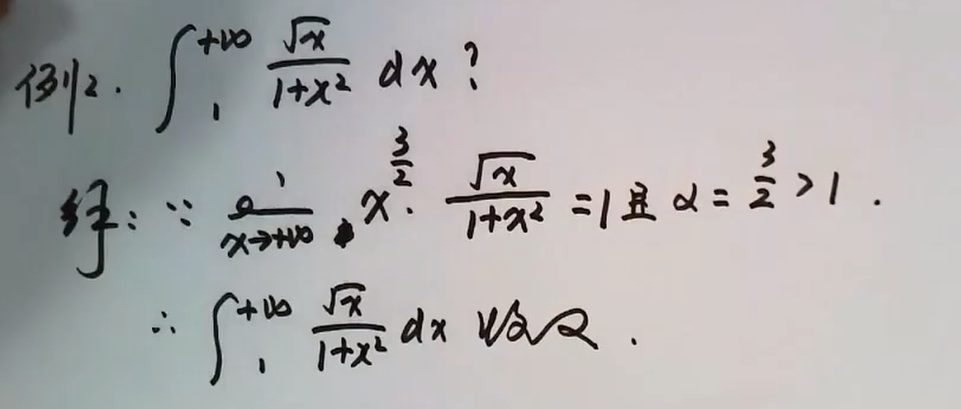 例2. ∫₁^{+∞} √x/(1+x²) dx ?
解: ∵ lim_{x→+∞} x^{3/2} · √x/(1+x²) = 1 且 α = 3/2 > 1 .
∴ ∫₁^{+∞} √x/(1+x²) dx 收敛 .